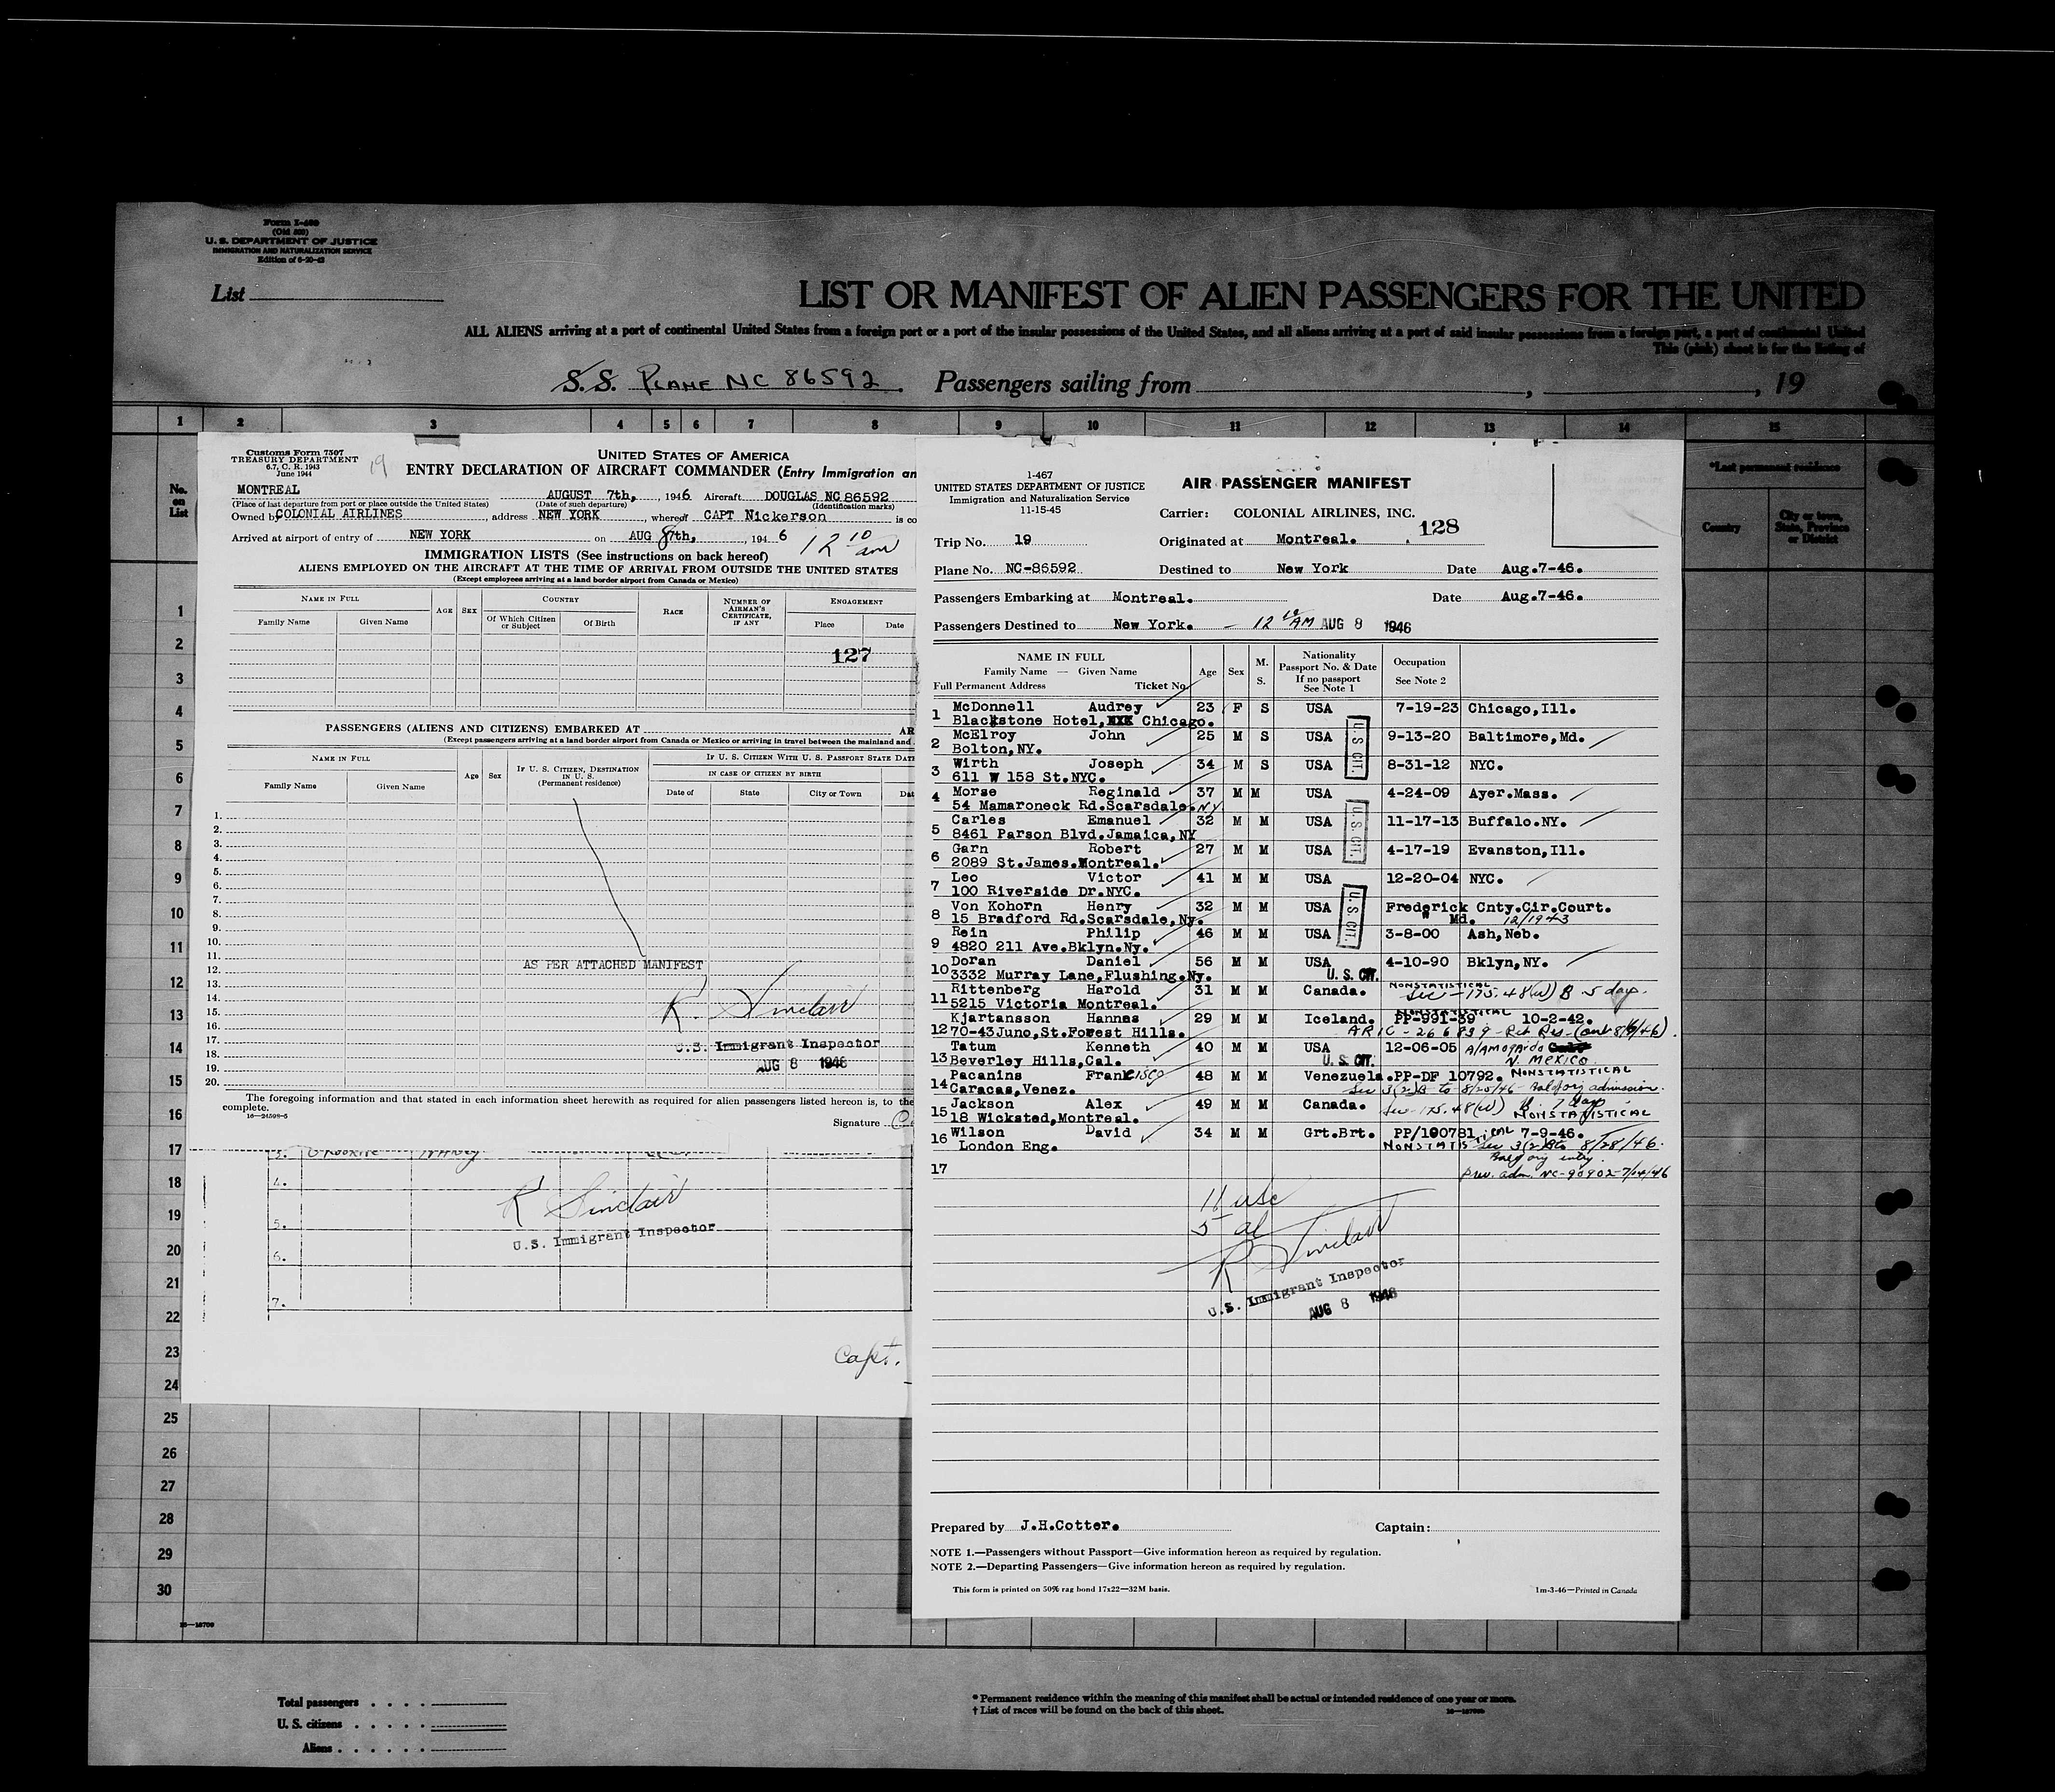 Form I-469
(Old 500)
U. S. DEPARTMENT OF JUSTICE
IMMIGRATION AND NATURALIZATION SERVICE
List
LIST OR MANIFEST OF ALIEN PASSENGERS FOR THE UNITED
ALL ALIENS arriving at a port of continental United States from a foreign port or a port of the insular possessions of the United States, and all aliens arriving at a port of said insular possessions from a foreign port, a port of continental United
This (pink) sheet is for the listing of
S.S. PLANE NC 86592. Passengers sailing from , , 19
1 2 3 4 5 6 7 8 9 10 11 12 13 14 15
No. on List
*Last permanent residence
Country
City or town, State, Province or District
Customs Form 7507
TREASURY DEPARTMENT
6.7, C. R. 1943
June 1944
19
UNITED STATES OF AMERICA
ENTRY DECLARATION OF AIRCRAFT COMMANDER (Entry Immigration an
MONTREAL AUGUST 7th, , 1946 Aircraft DOUGLAS NC 86592
(Place of last departure from port or place outside the United States) (Date of such departure) (Identification marks)
Owned by COLONIAL AIRLINES , address NEW YORK , whereof CAPT Nickerson is co
Arrived at airport of entry of NEW YORK on AUG 8th, , 194 6 12 10 am
IMMIGRATION LISTS (See instructions on back hereof)
ALIENS EMPLOYED ON THE AIRCRAFT AT THE TIME OF ARRIVAL FROM OUTSIDE THE UNITED STATES
(Except employees arriving at a land border airport from Canada or Mexico)
NAME IN FULL AGE SEX COUNTRY RACE NUMBER OF AIRMAN'S CERTIFICATE, IF ANY ENGAGEMENT
Family Name Given Name Of Which Citizen or Subject Of Birth Place Date
127
PASSENGERS (ALIENS AND CITIZENS) EMBARKED AT AR
(Except passengers arriving at a land border airport from Canada or Mexico or arriving in travel between the mainland and
NAME IN FULL Age Sex IF U. S. CITIZEN, DESTINATION IN U. S. (Permanent residence) IF U. S. CITIZEN WITH U. S. PASSPORT STATE DATE
IN CASE OF CITIZEN BY BIRTH
Family Name Given Name Date of State City or Town Dat
1.
2.
3.
4.
5.
6.
7.
8.
9.
10.
11.
12. AS PER ATTACHED MANIFEST
13.
14.
15. R. Sinclair
16.
17. U.S. Immigrant Inspector
18.
19. AUG 8 1946
20.
The foregoing information and that stated in each information sheet herewith as required for alien passengers listed hereon is, to the
complete.
16—24599-5
Signature
4.
R Sinclair
5.
U.S. Immigrant Inspector
6.
7.
Capt.
I-467
UNITED STATES DEPARTMENT OF JUSTICE
Immigration and Naturalization Service
11-15-45
AIR PASSENGER MANIFEST
Carrier: COLONIAL AIRLINES, INC.
128
Trip No. 19 Originated at Montreal.
Plane No. NC-86592 Destined to New York Date Aug.7-46.
Passengers Embarking at Montreal. Date Aug.7-46.
Passengers Destined to New York. - 12 10 AM AUG 8 1946
NAME IN FULL
Family Name — Given Name
Full Permanent Address Ticket No.
Age Sex M. S. Nationality Passport No. & Date If no passport See Note 1 Occupation See Note 2
1 McDonnell Audrey 23 F S USA 7-19-23 Chicago,Ill.
Blackstone Hotel, Chicago.
2 McElroy John 25 M S USA 9-13-20 Baltimore,Md.
Bolton,NY.
U.S. CIT.
3 Wirth Joseph 34 M S USA 8-31-12 NYC.
611 W 158 St.NYC.
4 Morse Reginald 37 M M USA 4-24-09 Ayer.Mass.
54 Mamaroneck Rd.Scarsdale.NY
5 Carles Emanuel 32 M M USA 11-17-13 Buffalo.NY.
8461 Parson Blvd.Jamaica,NY
U.S. CIT.
6 Garn Robert 27 M M USA 4-17-19 Evanston,Ill.
2089 St.James.Montreal.
7 Leo Victor 41 M M USA 12-20-04 NYC.
100 Riverside Dr.NYC.
8 Von Kohorn Henry 32 M M USA Frederick Cnty.Cir.Court.
15 Bradford Rd.Scarsdale,Ny. Md. 12/1943
U.S. CIT.
9 Rein Philip 46 M M USA 3-8-00 Ash,Neb.
4820 211 Ave.Bklyn.Ny.
10 Doran Daniel 56 M M USA 4-10-90 Bklyn,NY.
3332 Murray Lane,Flushing.Ny. U. S. CIT.
11 Rittenberg Harold 31 M M Canada. NONSTATISTICAL Sec - 175.48(w) B 5 days.
5215 Victoria Montreal.
12 Kjartansson Hannes 29 M M Iceland. PP-991-39 10-2-42.
70-43Juno,St.Forest Hills.
13 Tatum Kenneth 40 M M USA 12-06-05 Alamogordo
Beverley Hills,Cal. U. S. CIT. N. MEXICO.
14 Pacanins Francisco 48 M M Venezuela.PP-DF 10792. NONSTATISTICAL
Caracas,Venez. Sec 3(2)B to 8/25/46
15 Jackson Alex 49 M M Canada. Sec-175.48(w) B. 7 days
18 Wicksted,Montreal. NONSTATISTICAL
16 Wilson David 34 M M Grt.Brt. PP/100781 7-9-46.
London Eng. Sec 3(2)B to 8/28/46.
17 Prev. adm. NC-90902-7/14/46
11 usc
5 al
R Sinclair
U.S. Immigrant Inspector
AUG 8 1946
Prepared by J.H.Cotter. Captain:
NOTE 1.—Passengers without Passport—Give information hereon as required by regulation.
NOTE 2.—Departing Passengers—Give information hereon as required by regulation.
This form is printed on 50% rag bond 17x22—32M basis. 1m-3-46—Printed in Canada
1
2
3
4
5
6
7
8
9
10
11
12
13
14
15
16
17
18
19
20
21
22
23
24
25
26
27
28
29
30
Total passengers . . . .
U. S. citizens . . . . .
Aliens . . . . . .
* Permanent residence within the meaning of this manifest shall be actual or intended residence of one year or more.
† List of races will be found on the back of this sheet.